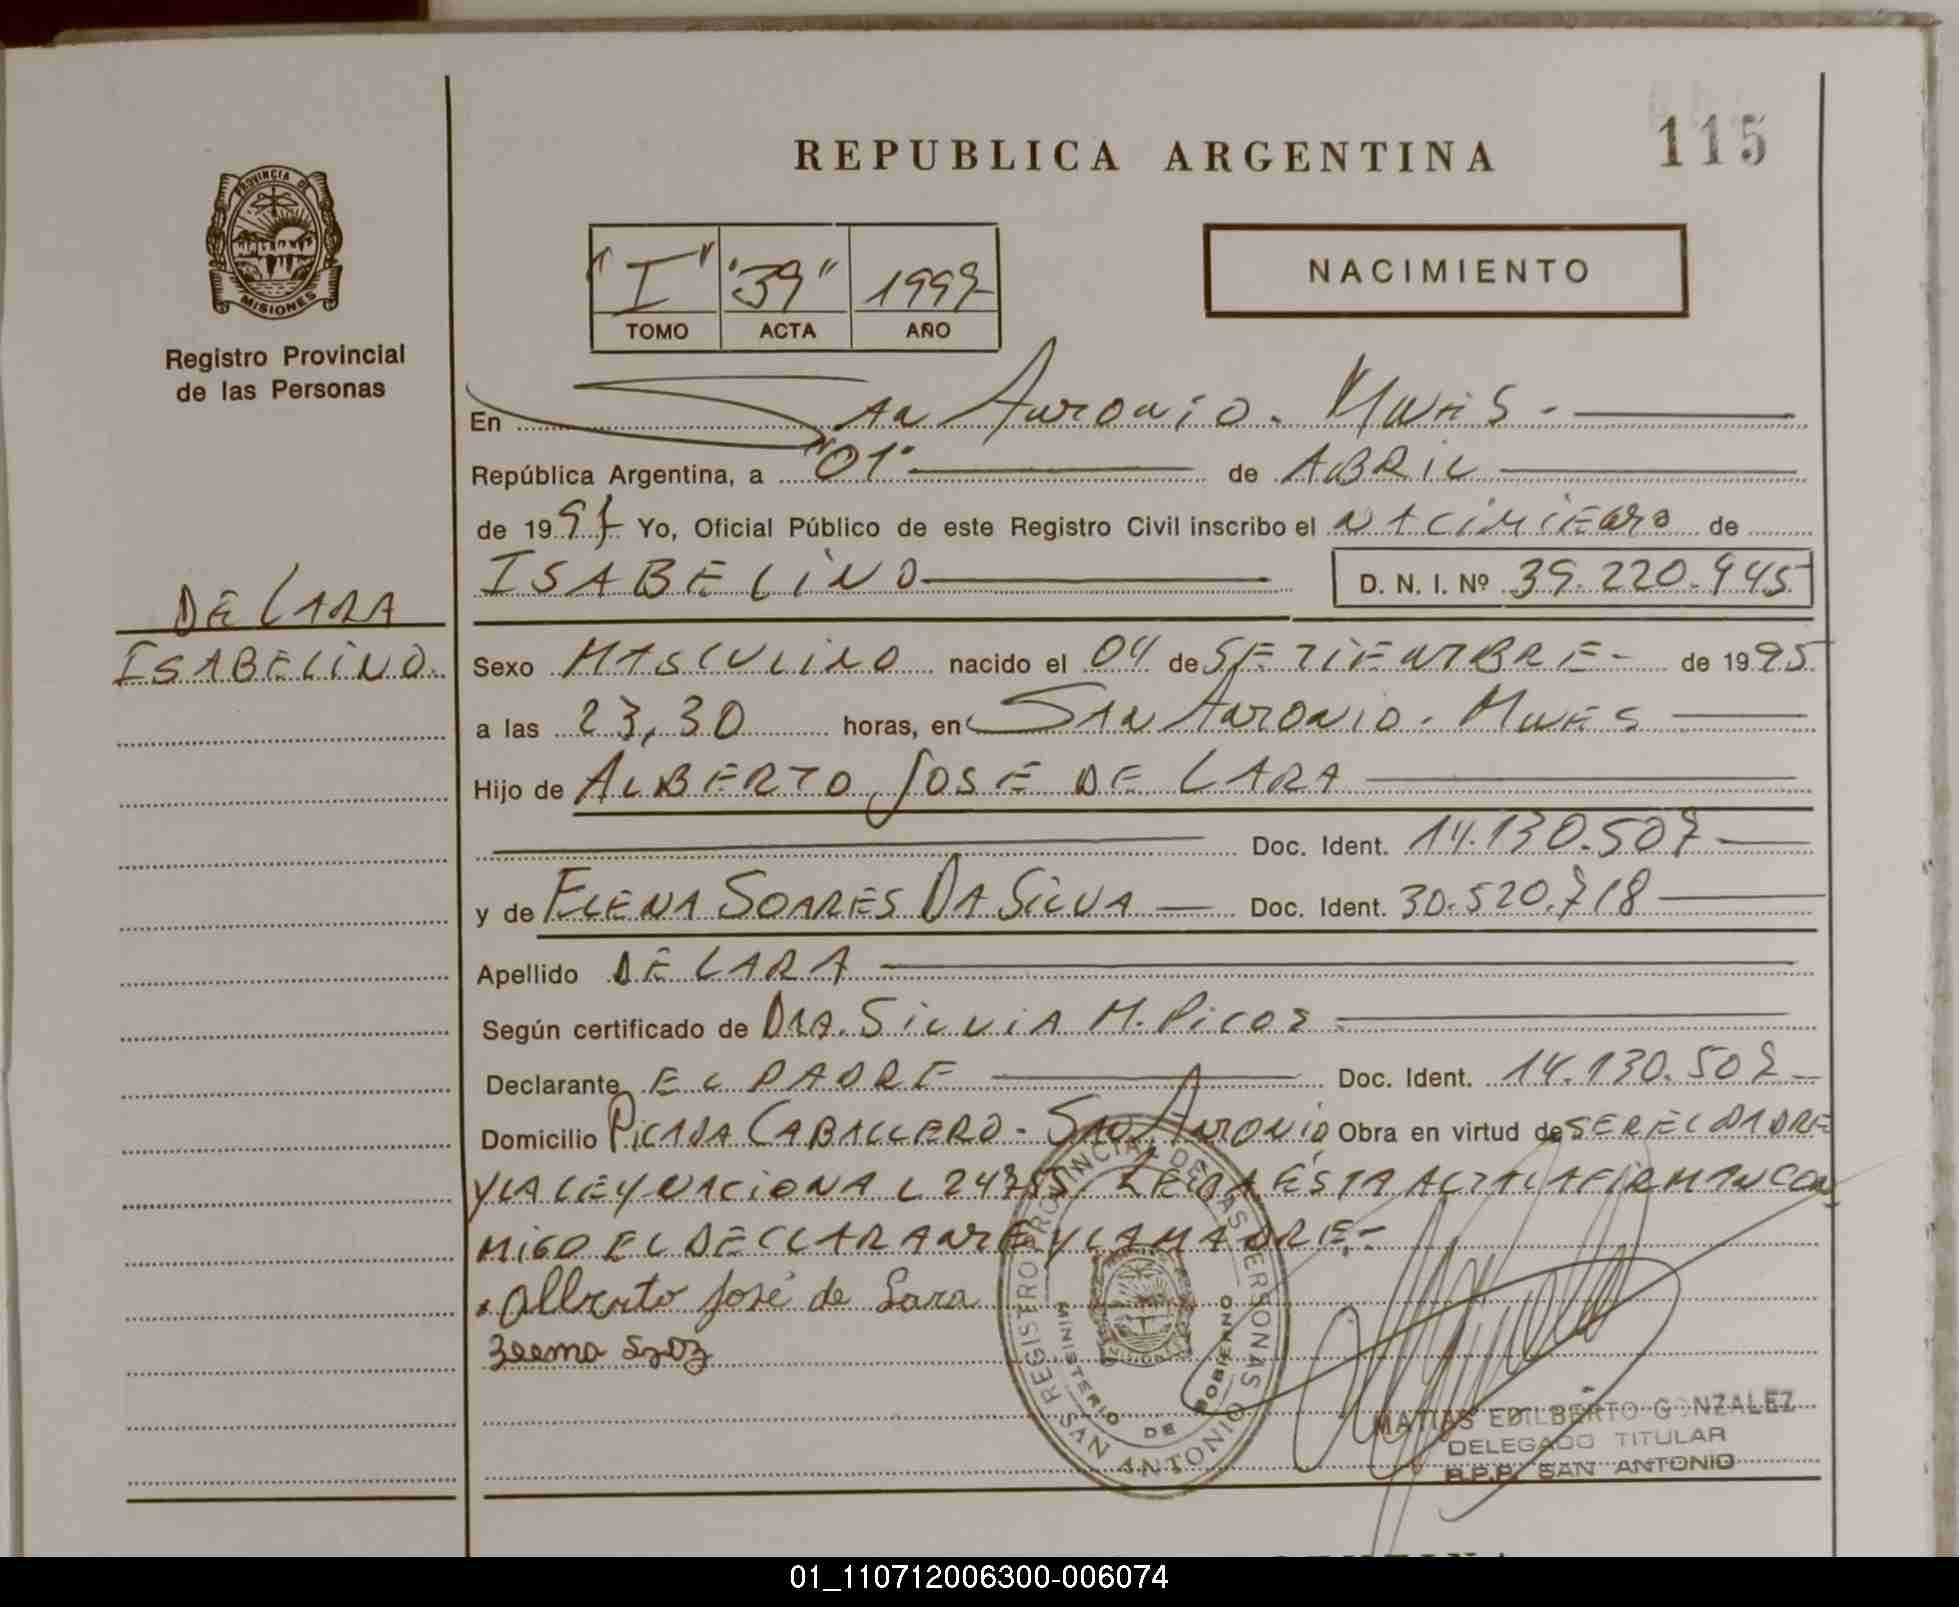 115
REPUBLICA ARGENTINA
PROVINCIA DE
MISIONES
Registro Provincial
de las Personas
"I" "39" 1997
TOMO ACTA AÑO
NACIMIENTO
En San Antonio - Mnes -
República Argentina, a "01" de ABRIL
de 1997 Yo, Oficial Público de este Registro Civil inscribo el NACIMIENTO de
ISABELINO D. N. I. Nº 39.220.945
DE LARA
ISABELINO.
Sexo MASCULINO nacido el 04 de SETIEMBRE - de 1995
a las 23,30 horas, en SAN ANTONIO - Mnes
Hijo de ALBERTO JOSE DE LARA
Doc. Ident. 14.130.507
y de ELENA SOARES DA SILVA Doc. Ident. 30.520.718
Apellido DE LARA
Según certificado de DRA. SILVIA M. PICOZ
Declarante EL PADRE Doc. Ident. 14.130.507
Domicilio PICADA CABALLERO - SAN ANTONIO Obra en virtud de SER EL PADRE
Y LA LEY NACIONAL 24755 LEIDA ESTA ACTA LA FIRMAN CON
MIGO EL DECLARANTE Y LA MADRE.-
Alberto José de Lara
REGISTRO PROVINCIAL DE LAS PERSONAS
MINISTERIO DE GOBIERNO
SAN ANTONIO
MATIAS EDILBERTO GONZALEZ
DELEGADO TITULAR
R.P.P. SAN ANTONIO
01_110712006300-006074